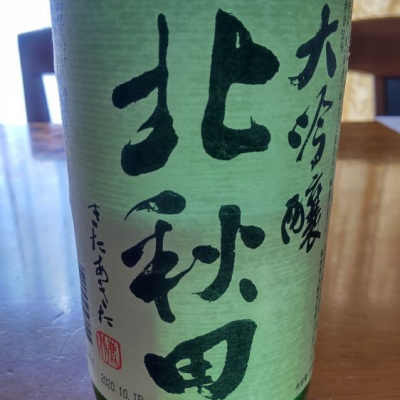 大吟醸
北秋田
きたあきた
2020.10